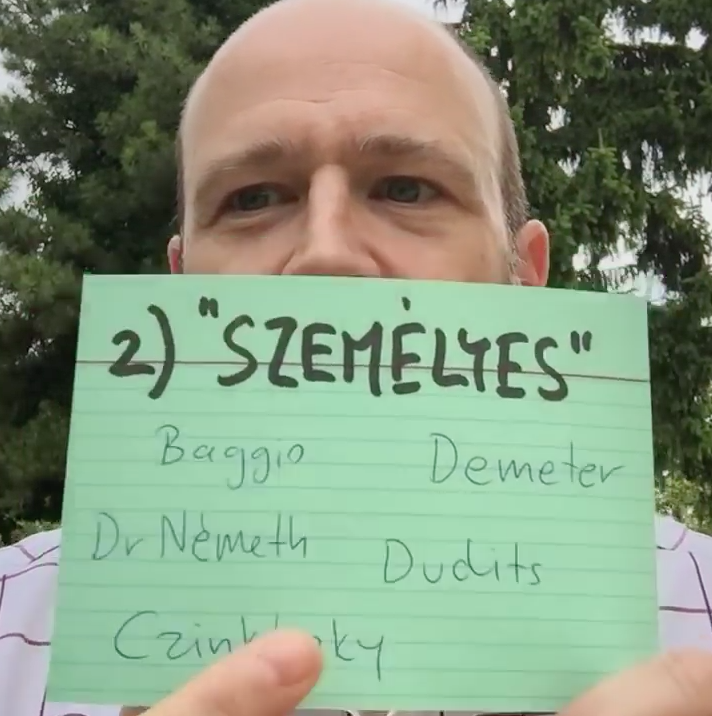 2) "SZEMÉLYES"
Baggio Demeter
Dr Németh Dudits